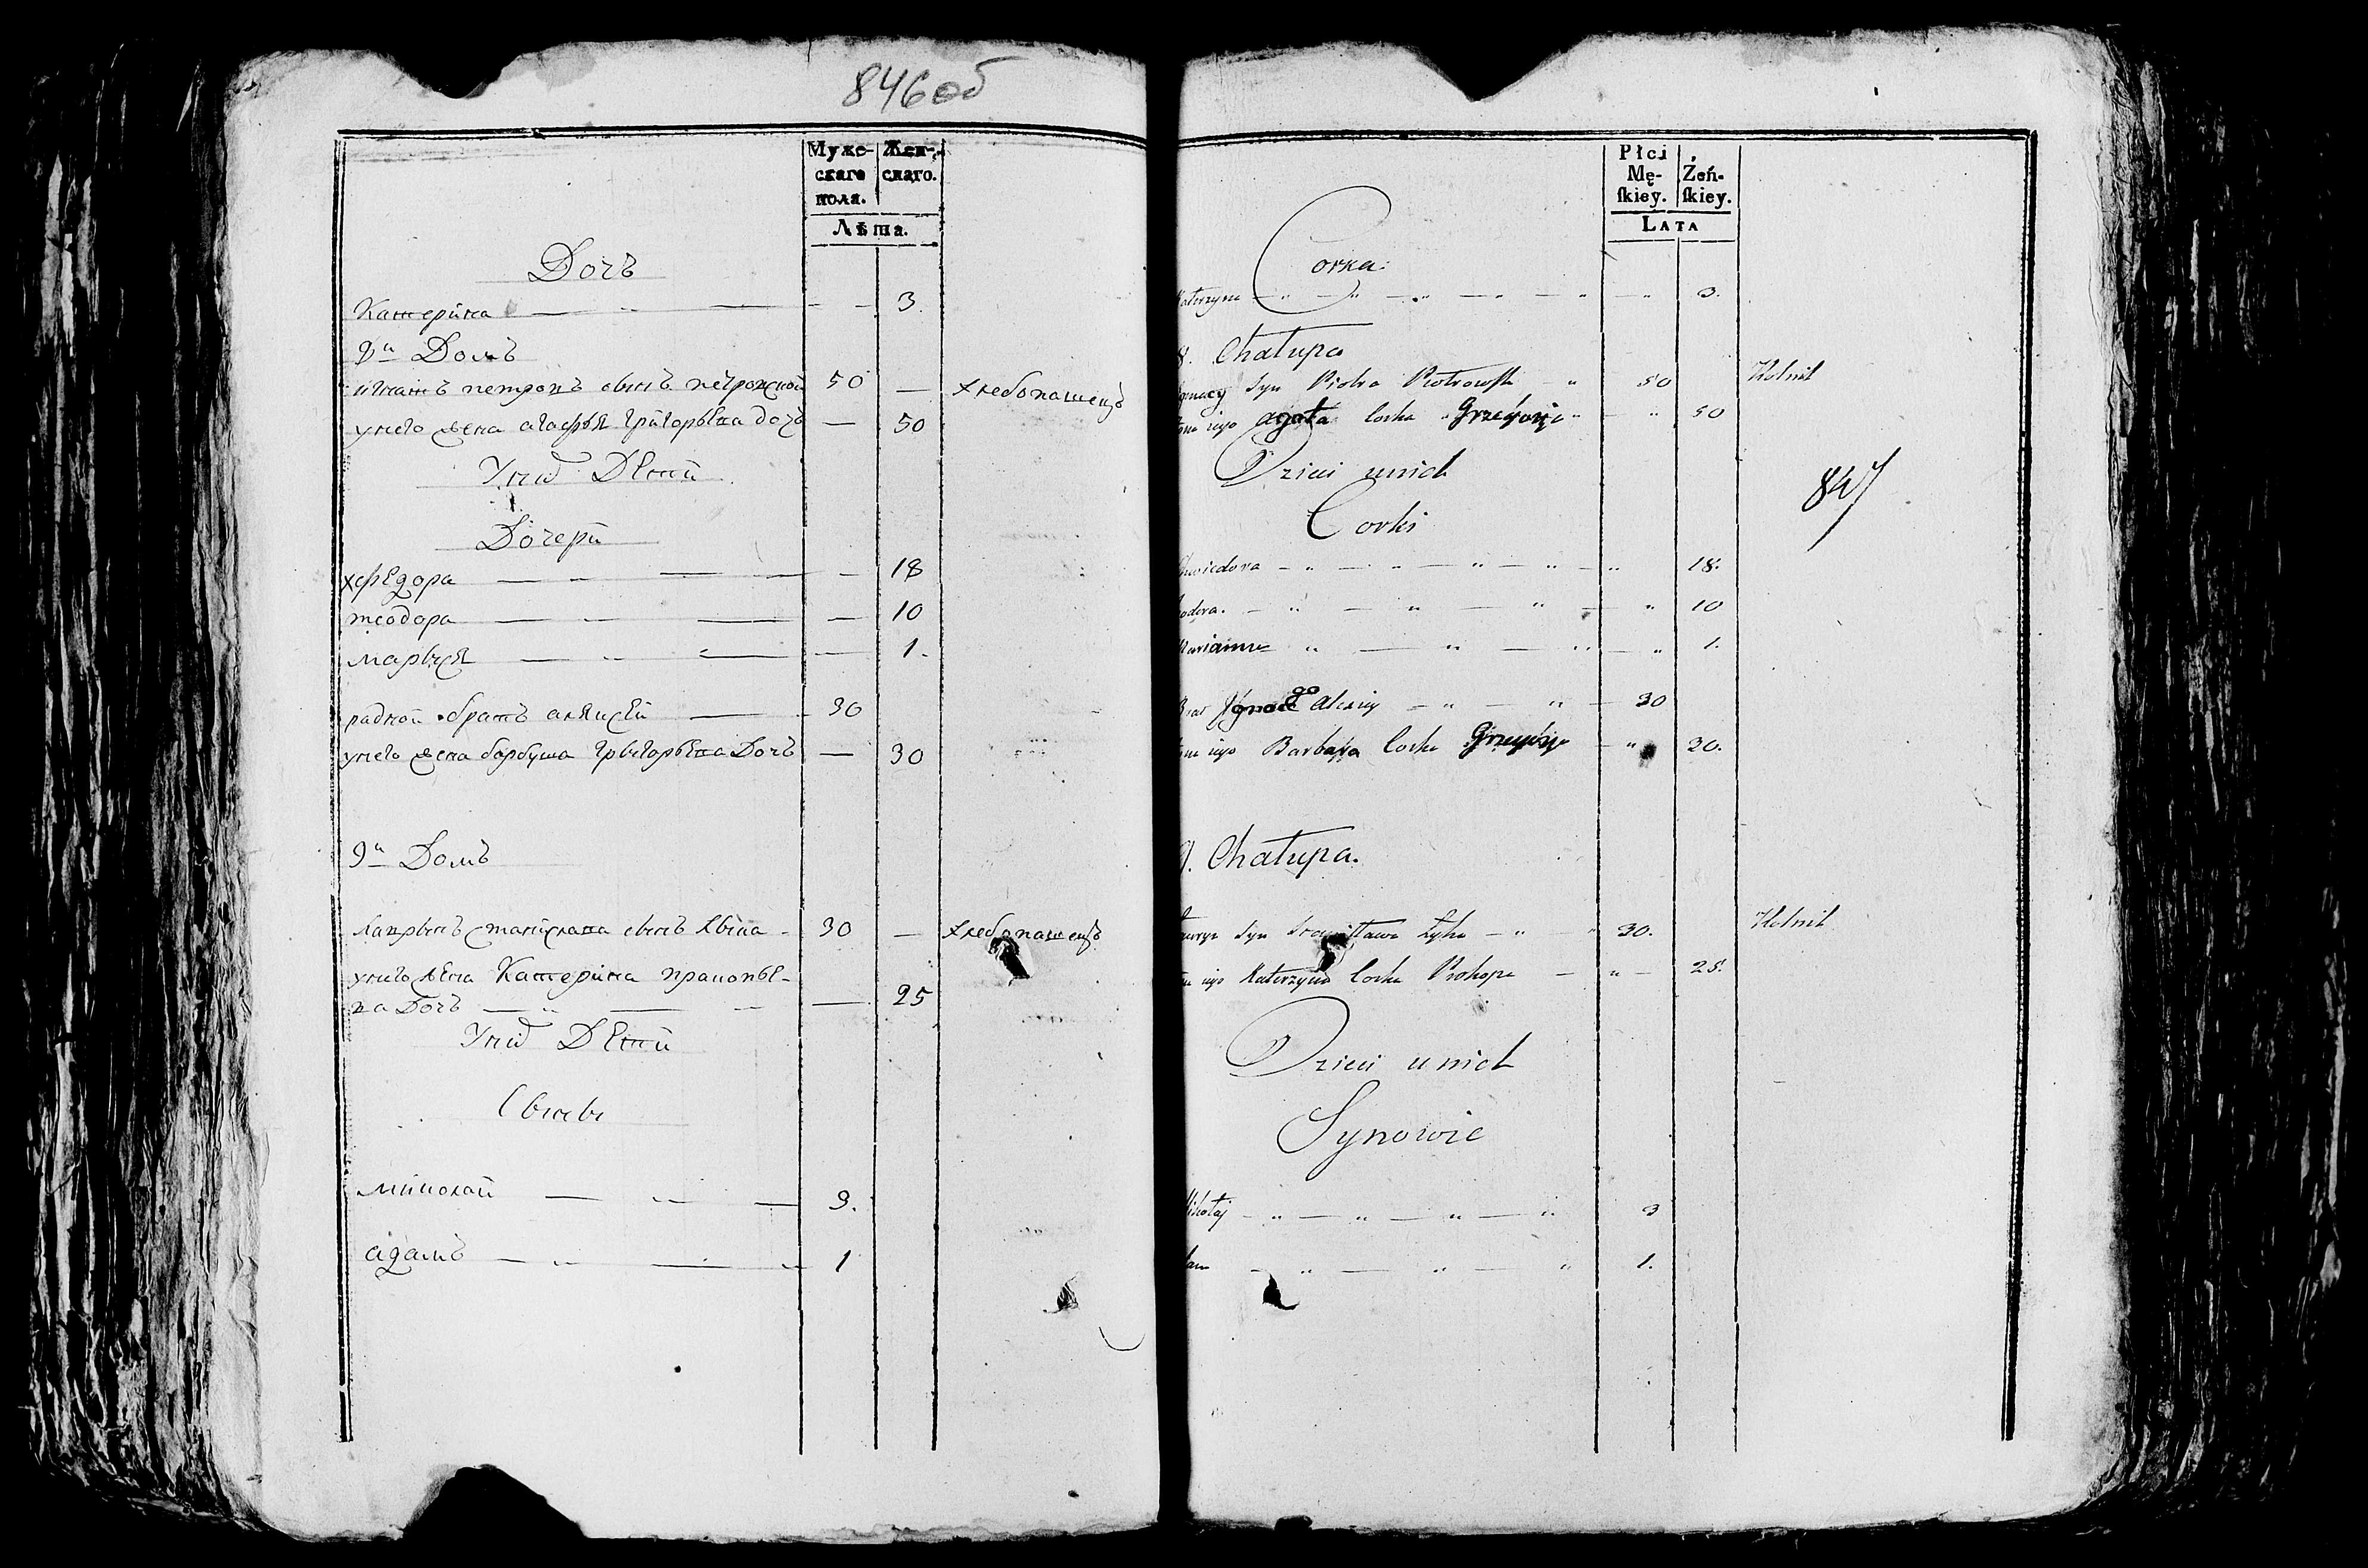 846об
Муже-
скаго
пола.
Жен-
скаго.
Лѣта.
Дочъ
Катерина — „ — — — 3.
Домъ
игнатъ петровъ сынъ петровской 50 — хлебопашецъ
унего жена агафѣя григорьева дочъ — 50
Унихъ Дети
Дочери
хфедора — „ — — — 18
теодора — „ — — 10
марыся — „ — — 1.
радной братъ алексей — 30
унего жена барбуша грыгорьева Дочъ — 30
9й Домъ
лаврынъ станислава сынъ 30 — хлебопашецъ
унего жена Катерина
ва Дочъ — „ — — — 25
Унихъ Дети
Сыны
миколай — „ — 3.
адамъ — „ — „ 1
Płci
Mę-
ſkiey.
Żeń-
ſkiey.
LATA
Corka:
Katerzyna — „ — „ — „ — „ — „ — „ 3.
8. Chałupa
Ignacy Syn Piotra Piotrowsk — „ 50 Rolnik
Żona iego agata Corka Grzegorza „ — „ 50
Dzieci unich
Corki
847
Chwiedora — „ — „ — „ — „ — „ 18.
Teodora. — „ — „ — „ — „ 10
Marianna „ — „ — „ — „ 1.
Brat Ignacego Alexiey — „ — „ — 30
Żona iego Barbara Corka Grzegorza — „ 30.
9. Chałupa.
Syn Stanisława — „ — „ 30. Rolnik
Żona iego Katerzyna Corka Prokopa — „ — 25.
Dzieci unich
Synowie
Mikołaj — „ — „ — „ — „ 3
Adam — „ — „ — „ 1.